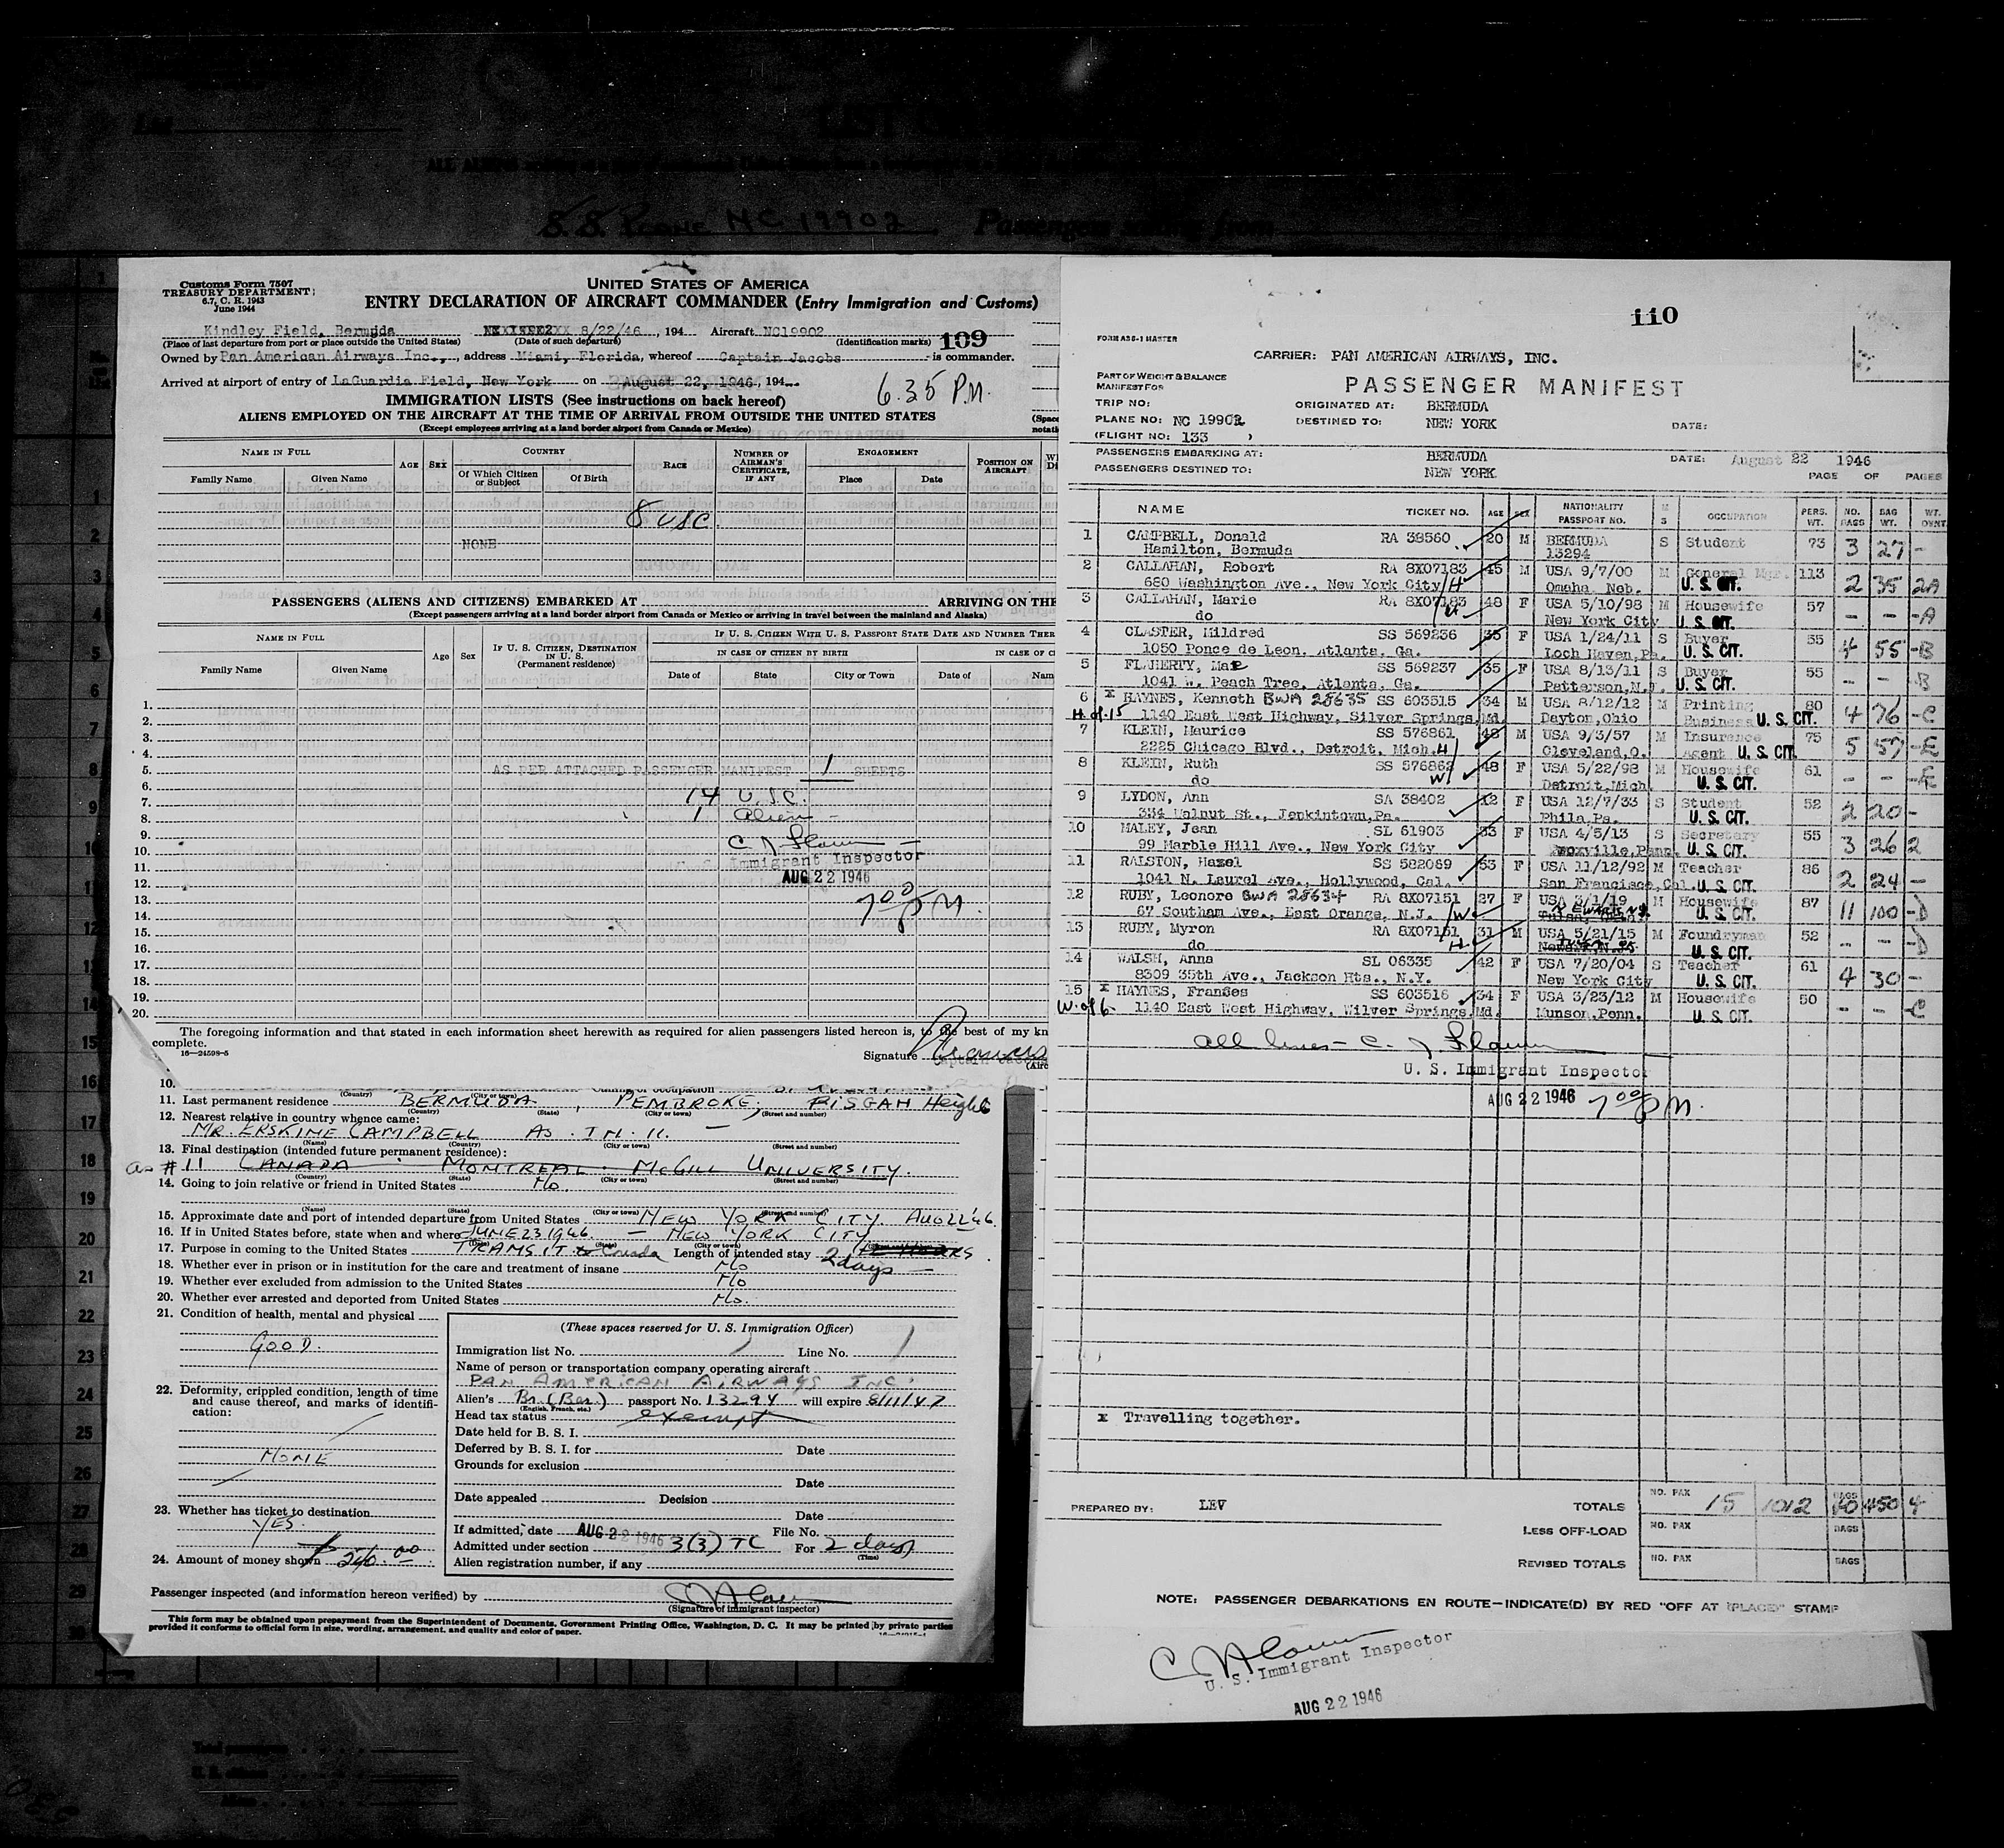 S. S. PLANE NC 19902 Passengers sailing from
Customs Form 7507
TREASURY DEPARTMENT;
6.7, C. R. 1943
June 1944
UNITED STATES OF AMERICA
ENTRY DECLARATION OF AIRCRAFT COMMANDER (Entry Immigration and Customs)
Kindley Field, Bermuda 8/22/46, 194 Aircraft NC19902
(Place of last departure from port or place outside the United States) (Date of such departure) (Identification marks) 109
Owned by Pan American Airways Inc., address Miami, Florida, whereof Captain Jacobs is commander.
Arrived at airport of entry of LaGuardia Field, New York on August 22, 1946, 194
6.35 P.M.
IMMIGRATION LISTS (See instructions on back hereof)
ALIENS EMPLOYED ON THE AIRCRAFT AT THE TIME OF ARRIVAL FROM OUTSIDE THE UNITED STATES
(Except employees arriving at a land border airport from Canada or Mexico)
NAME IN FULL AGE SEX COUNTRY RACE NUMBER OF AIRMAN'S CERTIFICATE, IF ANY ENGAGEMENT POSITION ON AIRCRAFT
Family Name Given Name Of Which Citizen or Subject Of Birth Place Date
8 USC.
NONE
PASSENGERS (ALIENS AND CITIZENS) EMBARKED AT ARRIVING ON THE
(Except passengers arriving at a land border airport from Canada or Mexico or arriving in travel between the mainland and Alaska)
NAME IN FULL Age Sex IF U. S. CITIZEN, DESTINATION IN U. S. (Permanent residence) IF U. S. CITIZEN WITH U. S. PASSPORT STATE DATE AND NUMBER THER
IN CASE OF CITIZEN BY BIRTH IN CASE OF C
Family Name Given Name Date of State City or Town Date of Nam
1.
2.
3.
4.
5. AS PER ATTACHED PASSENGER MANIFEST 1 SHEETS
6.
7. 14 U.S.C.
8. 1 Alien
9.
10.
11. Immigrant Inspector
12. AUG 22 1946
13. 7 00 PM.
14.
15.
16.
17.
18.
19.
20.
The foregoing information and that stated in each information sheet herewith as required for alien passengers listed hereon is, to the best of my kn
complete.
16—24598-5
Signature
10.
11. Last permanent residence BERMUDA, PEMBROKE, PISGAH Heights
(Country) (State) (City or town) (Street and number)
12. Nearest relative in country whence came:
MR. ERSKINE CAMPBELL AS. IN. 11.
(Name) (Country) (City or town) (Street and number)
13. Final destination (intended future permanent residence):
as #11 CANADA MONTREAL McGILL UNIVERSITY.
(Country) (State) (City or town) (Street and number)
14. Going to join relative or friend in United States No.
(Name) (State) (City or town) (Street and number)
15. Approximate date and port of intended departure from United States NEW YORK CITY. AUG 22 '46.
16. If in United States before, state when and where JUNE 23 1946. — NEW YORK CITY
17. Purpose in coming to the United States TRANSIT to Canada Length of intended stay 2 days
18. Whether ever in prison or in institution for the care and treatment of insane No
19. Whether ever excluded from admission to the United States No
20. Whether ever arrested and deported from United States No.
21. Condition of health, mental and physical
GOOD.
22. Deformity, crippled condition, length of time
and cause thereof, and marks of identifi-
cation:
NONE
23. Whether has ticket to destination
YES.
24. Amount of money shown $ 240.00
(These spaces reserved for U. S. Immigration Officer)
Immigration list No. 1 Line No. 1
Name of person or transportation company operating aircraft
PAN AMERICAN AIRWAYS INC.
Alien's Br. (Ber.) passport No. 13294 will expire 8/11/47
(English, French, etc.)
Head tax status exempt
Date held for B. S. I.
Deferred by B. S. I. for Date
Grounds for exclusion
Date
Date appealed Decision
Date
If admitted, date AUG 22 1946 File No.
Admitted under section 3(3) TC For 2 days
(Time)
Alien registration number, if any
Passenger inspected (and information hereon verified) by
(Signature of immigrant inspector)
This form may be obtained upon prepayment from the Superintendent of Documents, Government Printing Office, Washington, D. C. It may be printed by private parties
provided it conforms to official form in size, wording, arrangement, and quality and color of paper.
110
FORM ASS-1 MASTER
CARRIER: PAN AMERICAN AIRWAYS, INC.
PART OF WEIGHT & BALANCE
MANIFEST FOR
PASSENGER MANIFEST
TRIP NO: ORIGINATED AT: BERMUDA
PLANE NO: NC 19902 DESTINED TO: NEW YORK DATE:
(FLIGHT NO: 133 )
PASSENGERS EMBARKING AT: BERMUDA DATE: August 22 1946
PASSENGERS DESTINED TO: NEW YORK PAGE OF PAGES
NAME TICKET NO. AGE SEX NATIONALITY PASSPORT NO. M S OCCUPATION PERS. WT. NO. BAGS BAG WT. WT. OVNT.
1 CAMPBELL, Donald RA 38560 20 M BERMUDA S Student 73 3 27 -
Hamilton, Bermuda 13294
2 CALLAHAN, Robert RA 8X07183 45 M USA 9/7/00 M General Mgr. 113 2 35 2A
680 Washington Ave., New York City H Omaha, Neb. U. S. CIT.
3 CALLAHAN, Marie RA 8X07183 48 F USA 5/10/98 M Housewife 57 - - -A
do W New York City U. S. CIT.
4 CLASTER, Mildred SS 569236 35 F USA 1/24/11 S Buyer 55 4 55 -B
1050 Ponce de Leon, Atlanta, Ga. Loch Haven, Pa. U. S. CIT.
5 FLAHERTY, Mae SS 569237 35 F USA 8/13/11 S Buyer 55 - - -B
1041 W. Peach Tree, Atlanta, Ga. Patterson, N.J. U. S. CIT.
6 x HAYNES, Kenneth BWA 28635 SS 603515 34 M USA 8/12/12 M Printing 80 4 76 -C
H. of 15 1140 East West Highway, Silver Springs, Md. Dayton, Ohio Business U. S. CIT.
7 KLEIN, Maurice SS 576861 48 M USA 9/3/57 M Insurance 75 5 57 -E
2225 Chicago Blvd., Detroit, Mich. H Cleveland, O. Agent U. S. CIT.
8 KLEIN, Ruth SS 576862 48 F USA 5/22/98 M Housewife 61 - - -E
do W Detroit, Mich. U. S. CIT.
9 LYDON, Ann SA 38402 12 F USA 12/7/33 S Student 52 2 20 -
334 Walnut St., Jenkintown, Pa. Phila, Pa. U. S. CIT.
10 MALEY, Jean SL 61903 33 F USA 4/5/13 S Secretary 55 3 26 2
99 Marble Hill Ave., New York City Penn. U. S. CIT.
11 RALSTON, Hazel SS 582089 53 F USA 11/12/92 M Teacher 86 2 24 -
1041 N. Laurel Ave., Hollywood, Cal. San Francisco, Cal. U. S. CIT.
12 RUBY, Leonore BWA 28634 RA 8X07151 27 F USA 3/1/19 M Housewife 87 11 100 -D
67 Southam Ave., East Orange, N.J. W NEWARK NJ. U. S. CIT.
13 RUBY, Myron RA 8X07151 31 M USA 5/21/15 M Foundryman 52 - - -D
do H. U. S. CIT.
14 WALSH, Anna SL 06335 42 F USA 7/20/04 S Teacher 61 4 30 -
8309 35th Ave., Jackson Hts., N.Y. New York City U. S. CIT.
15 x HAYNES, Franses SS 603516 34 F USA 3/23/12 M Housewife 50 - - -C
W. of 6. 1140 East West Highway, Wilver Springs, Md. Munson, Penn. U. S. CIT.
All lines —
U. S. Immigrant Inspector
AUG 22 1946 7 00 PM.
x Travelling together.
PREPARED BY: LEV TOTALS NO. PAX 15 1012 BAGS 40 450 4
LESS OFF-LOAD NO. PAX BAGS
REVISED TOTALS NO. PAX BAGS
NOTE: PASSENGER DEBARKATIONS EN ROUTE—INDICATE(D) BY RED "OFF AT (PLACE)" STAMP
U. S. Immigrant Inspector
AUG 22 1946